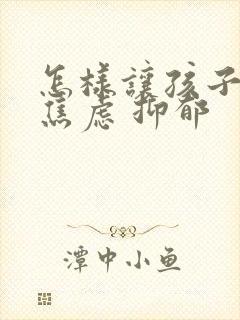 怎樣讓孩子
焦虑抑郁
潭中小鱼